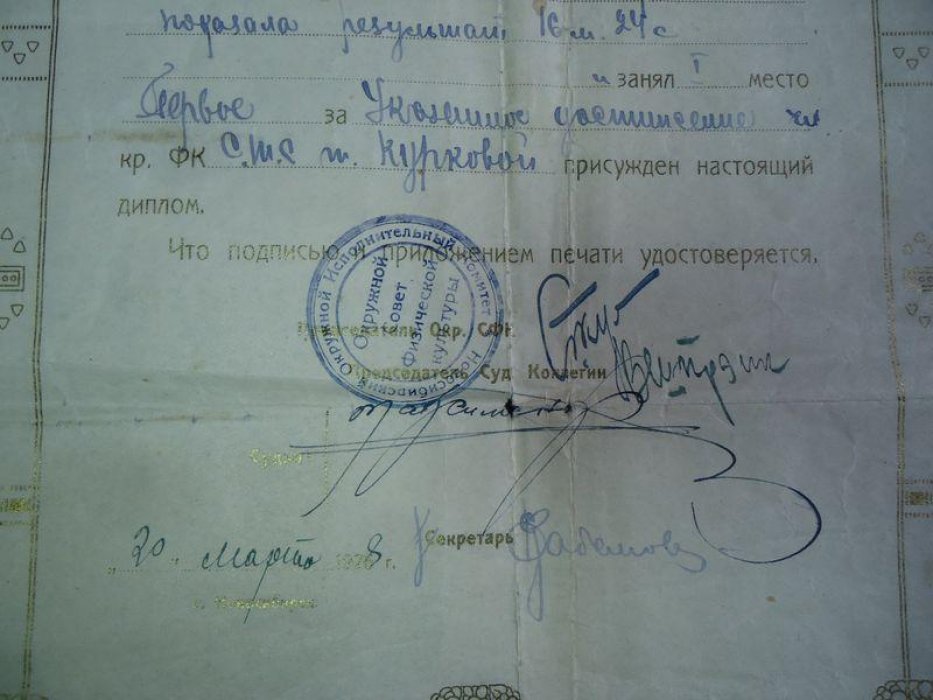 показала результат 16 м. 24 с
и занял I место
Первое за Указанное достижение чл
кр. ФК С.Т.С т. Курковой присужден настоящий
диплом.
Что подписью и приложением печати удостоверяется.
Новосибирский Окружной Исполнительный Комитет
Окружной
Совет
Физической
культуры
Председатель Окр. СФК
Председатель Суд Коллегии
Судьи:
Секретарь
"20" Марта 1928 г.
г. Новосибирск